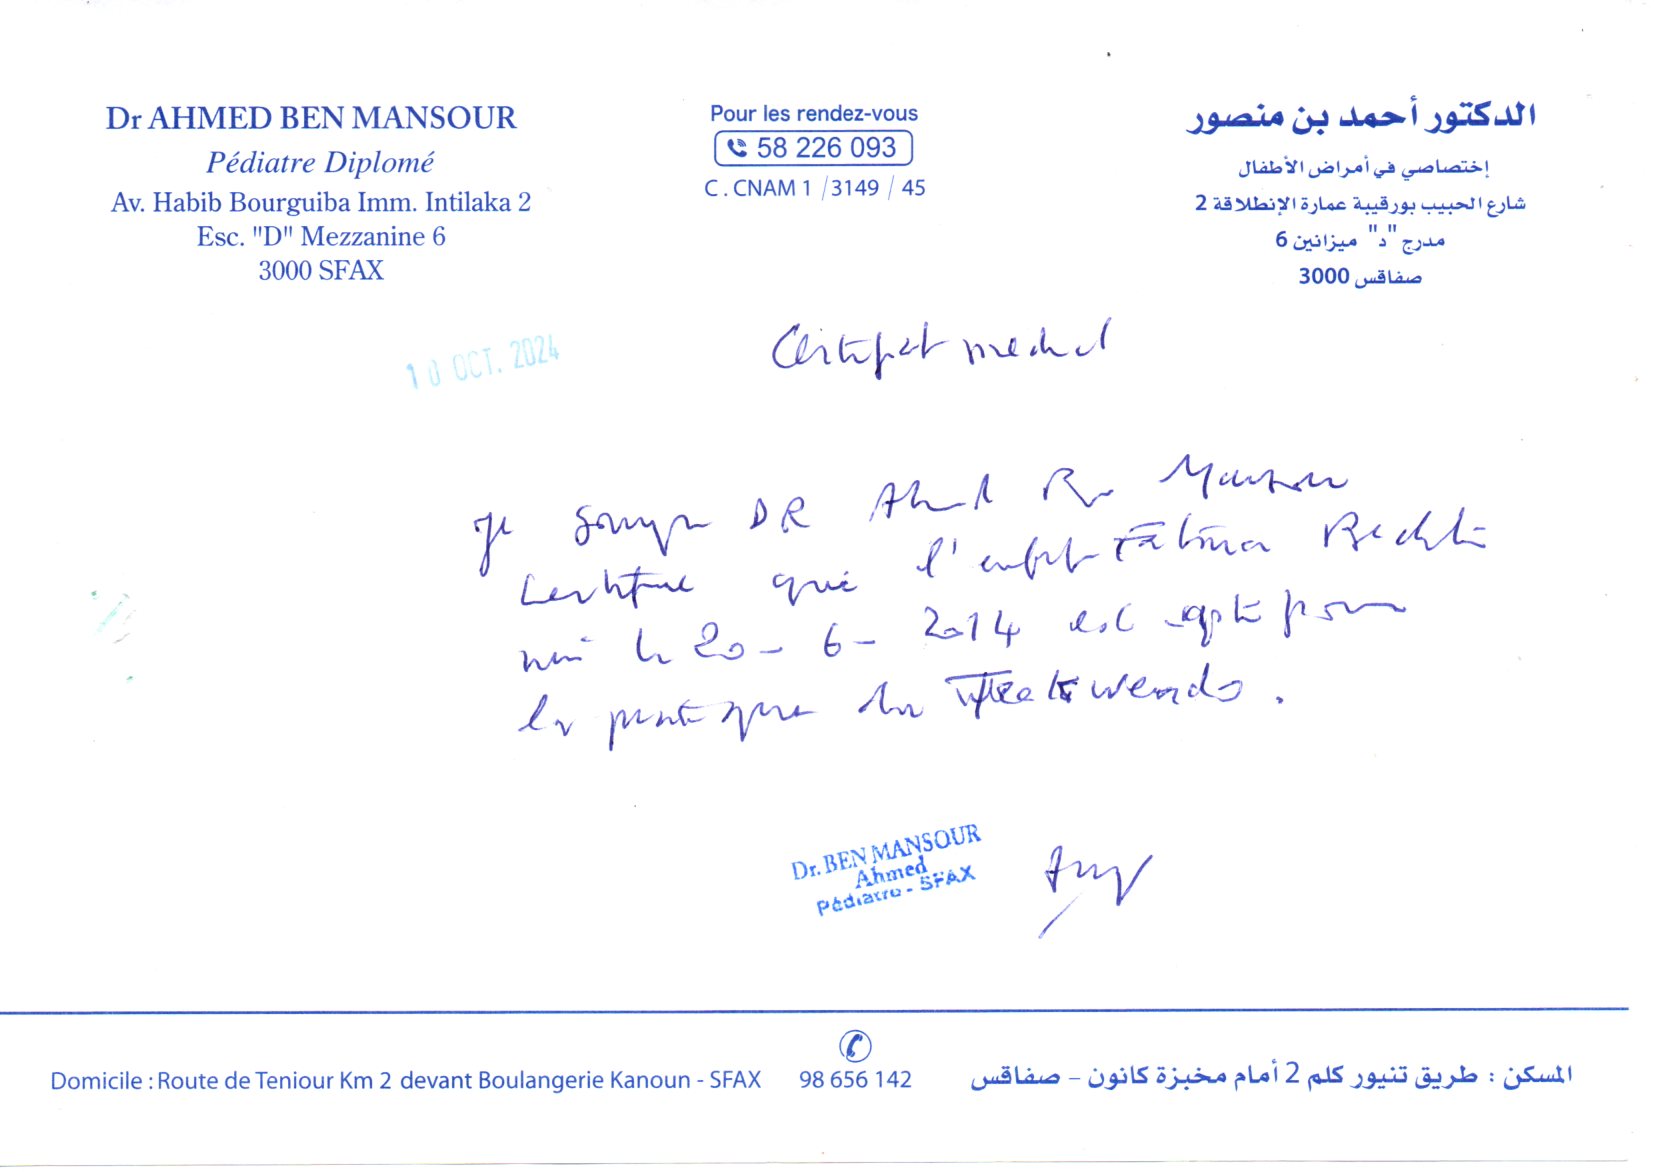 Dr AHMED BEN MANSOUR
Pédiatre Diplomé
Av. Habib Bourguiba Imm. Intilaka 2
Esc. "D" Mezzanine 6
3000 SFAX
Pour les rendez-vous
58 226 093
C . CNAM 1 / 3149 / 45
الدكتور أحمد بن منصور
إختصاصي في أمراض الأطفال
شارع الحبيب بورقيبة عمارة الإنطلاقة 2
مدرج "د" ميزانين 6
صفاقس 3000
10 OCT. 2024
Certificat medical
Je soussigné DR Ahmed Ben Mansour
certifie que l'enfant Fatma
née le 20 - 6 - 2014 est apte pour
la pratique du Taekwendo .
Dr. BEN MANSOUR
Ahmed
Pédiatre - SFAX
Domicile : Route de Teniour Km 2 devant Boulangerie Kanoun - SFAX
98 656 142
المسكن : طريق تنيور كلم 2 أمام مخبزة كانون – صفاقس